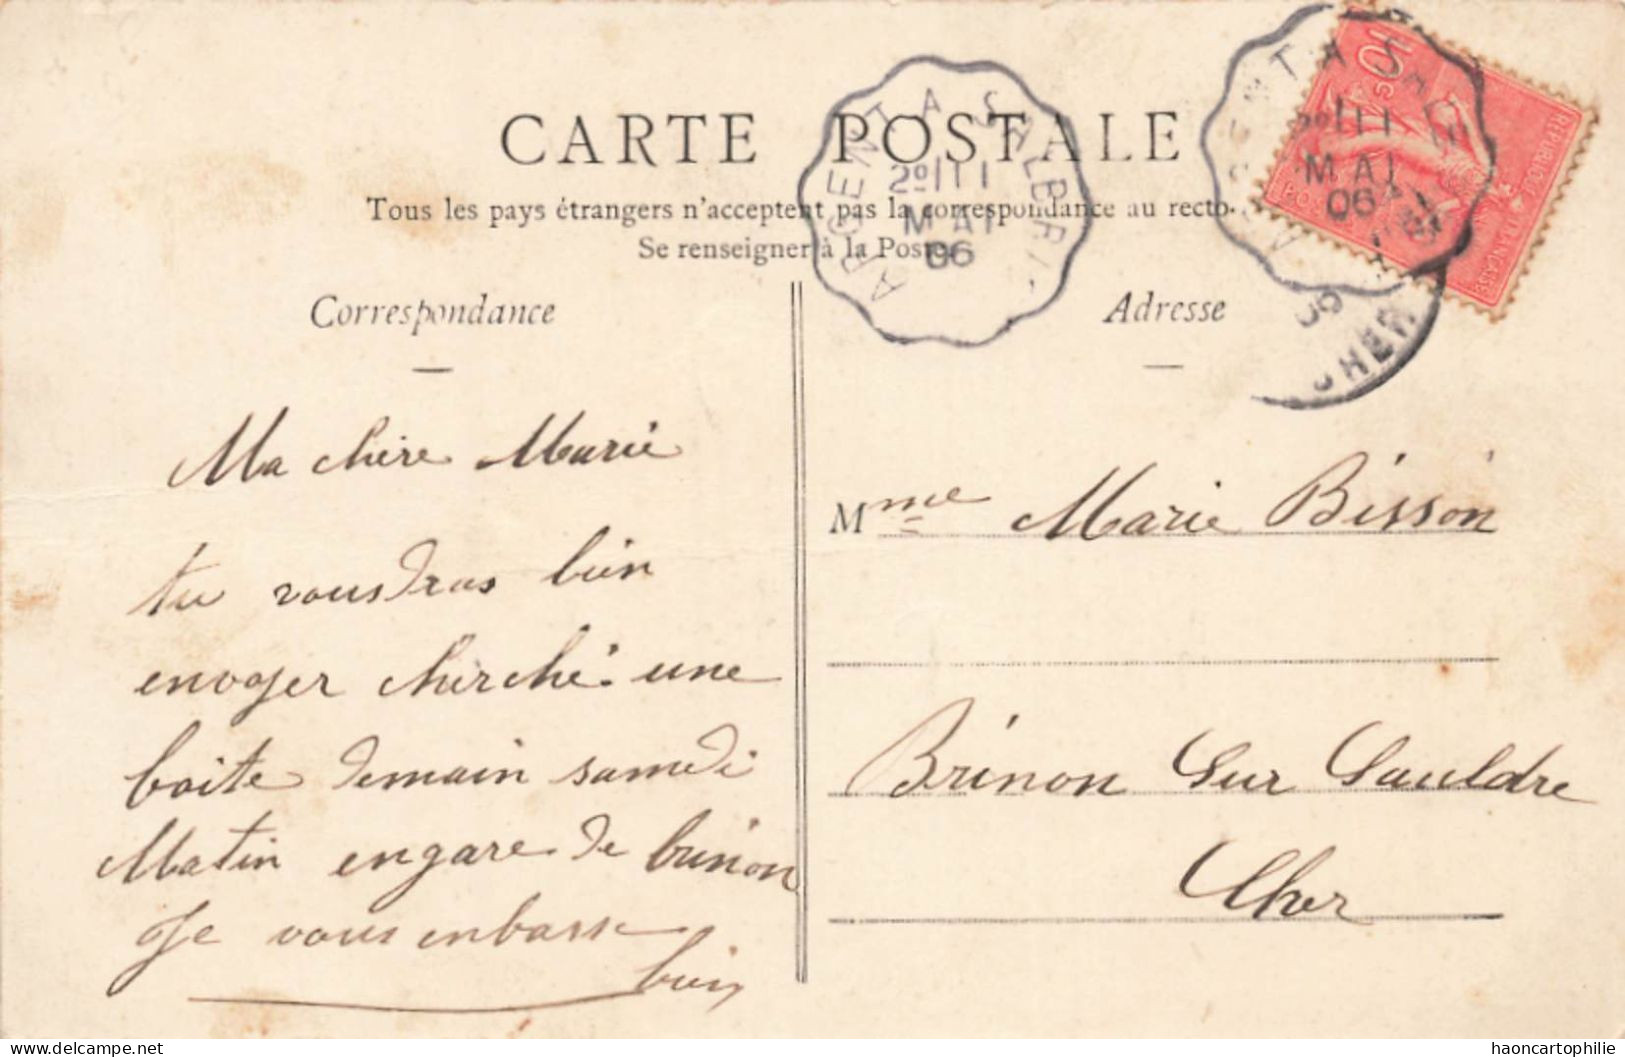 CARTE POSTALE
Tous les pays étrangers n'acceptent pas la correspondance au recto.
Se renseigner à la Poste.
ARGENT A SALBRI
2º/11
MAI
06
10
POSTES
REPUBLIQUE FRANÇAISE
MAI
06
CHER
Correspondance
Ma chère Marie
tu voudras bien
envoyer cherché une
boite demain samedi
Matin en gare de brinon
Je vous enbasse
bien
Adresse
Mme Marie Bisson
Brinon Sur Sauldre
Cher
www.delcampe.net
haoncartophilie